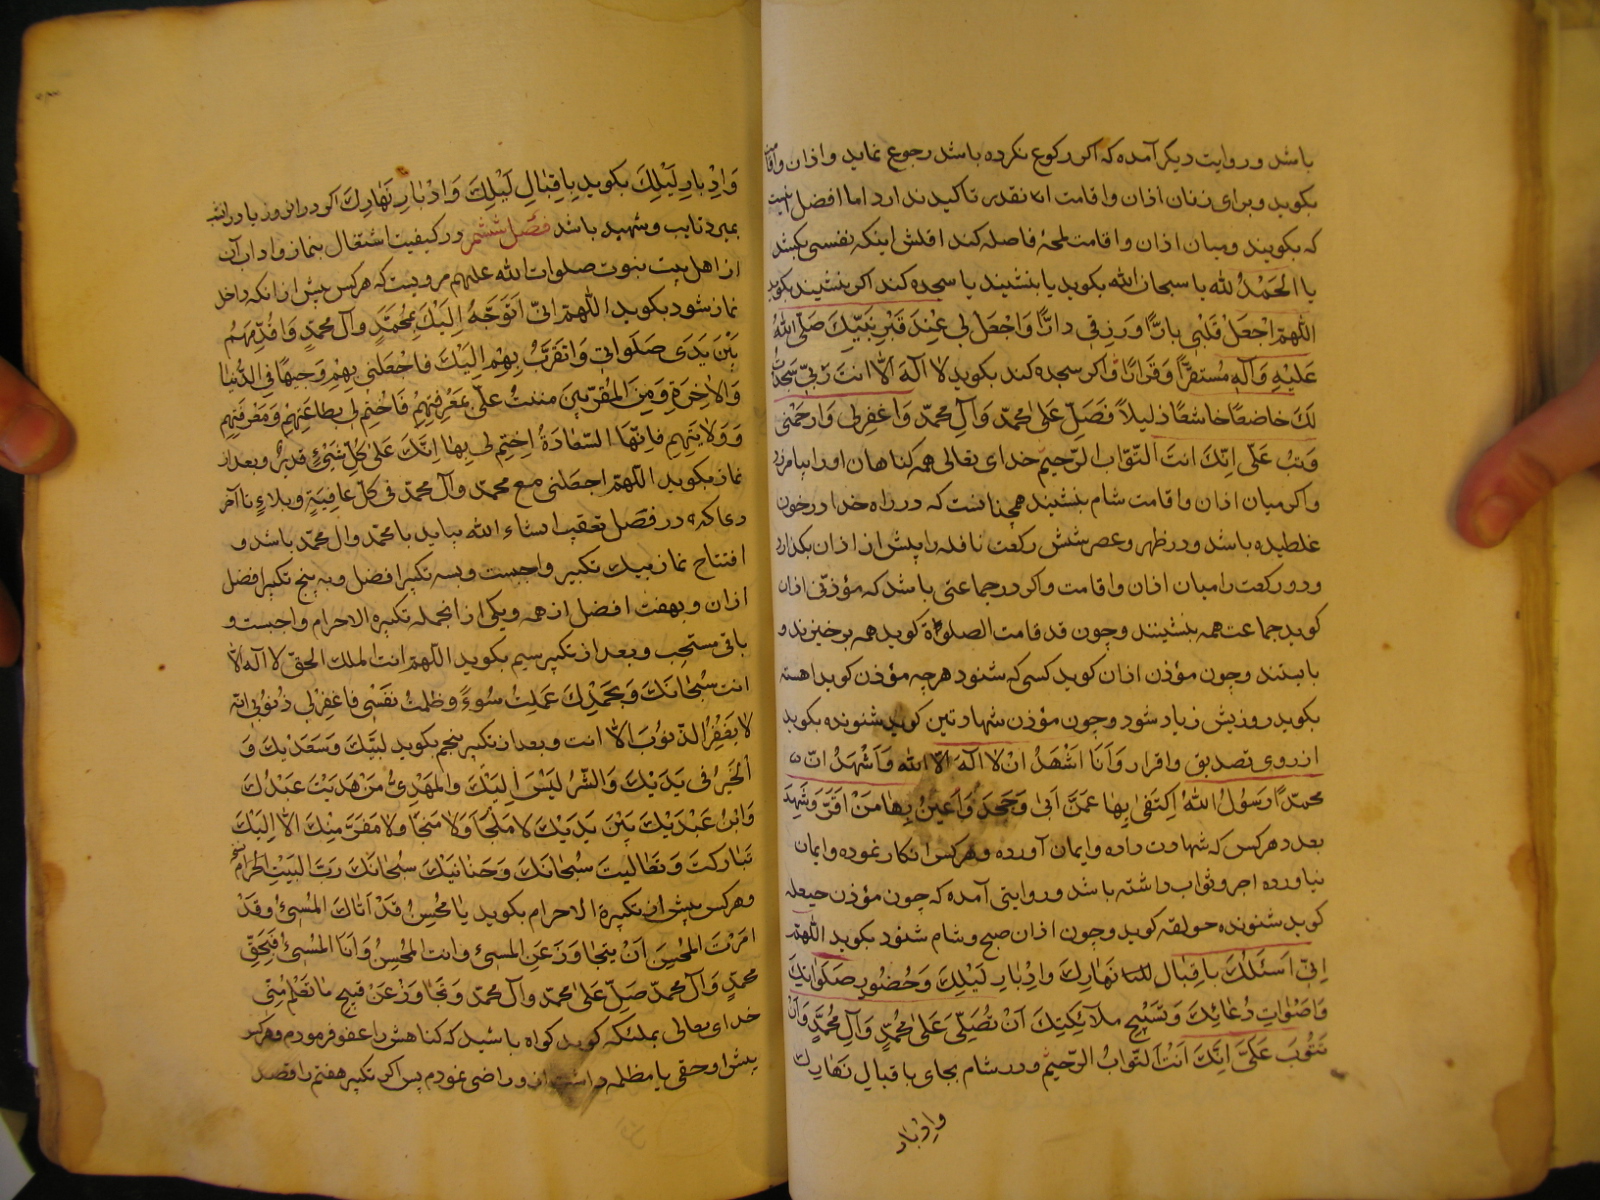 باشد و روایت دیگر آمده که اگر رکوع نکرده باشد رجوع نماید و اذان واقامت
بکوید و برای زنان اذان و اقامت انقدر تاکید ندارد اما افضل اینست
که بکویند و میان اذان و اقامت لمحهٔ فاصله کند اقلش اینکه نفسی بکشد
یا الحَمْدُ لله یا سبحان الله بکوید یا بنشیند یا سجده کند اکر بنشیند بکوید
اللّهمّ اجْعَلْ قَلْبی بارًّا وَرِزقی دارًّا وَاجْعَل لی عِنْدَ قَبْرِ نَبیّكَ صَلّی اللهُ
عَلیْهِ وَآلِهِ مُستقرًّا وَقَرارًا واکر سجده کند بکوید لا اله الّا انتَ رَبّی سَجَدتُ
لَكَ خاضعًا خاشعًا ذلیلاً فَصَلِّ عَلیٰ محمّد وَآلِ محمّد وَاغفِرلی وَارحَمْنی
وَتبْ عَلَیّ اِنّكَ انتَ التّوّاب الرّحیمُ خدای تعالی همه کناهان اورا بیامرزد
واکر میان اذان و اقامت شام بنشیند همچنانست که در راه خدا در خون
غلطیده باشد و در ظهر و عصر شش رکعت نافله را پیش از اذان بکذارد
و دو رکعت را میان اذان و اقامت واکر در جماعتی باشد که مؤذّنی اذان
کوید جماعت همه بنشینند و چون قد قامت الصلوة کوید همه برخیزند و
بایستند و چون مؤذن اذان کوید کسی که شنود هرچه مؤذن کوید اهسته
بکوید روزیش زیاد شود و چون مؤذن شهادتین کوید شنونده بکوید
از روی تصدیق و اقرار وَاَنَا اَشْهَدُ انْ لا اله الّا الله وَاَشْهَدُ انّ
محمّدًا رَسُوْلُ اللهُ اِکتَفی بِهَا عمَّن اَبی وَجَحَدَ وَاَعینُ بِها مَنْ اقَرَّ وَشَهِدَ
بعدد هرکس که شهادت داده و ایمان آورده و هرکس انکار نموده و ایمان
نیاورده اجر و ثواب داشته باشد و روایتی آمده که چون مؤذن حیعله
کوید شنونده حولقه کوید و چون اذان صبح و شام شنود بکوید اللّهمّ
اِنّی اَسئَلُكَ بِاِقبالِ نَهارِكَ وَاِدْبارِ لَیْلِكَ وَحُضُورِ صَلَوٰاتِكَ
وَاَصْوٰاتِ دُعَائِكَ وَتَسْبیحِ ملآئِکَتِكَ اَنْ تُصَلّیَ عَلیٰ مُحمّدٍ وَآلِ مُحمَّدٍ وَاَنْ
تَتُوْبَ عَلَیَّ اِنَّكَ اَنْتَ التّوابُ الرّحیمُ و در شام بجای باقبالِ نَهٰارِكَ
وادبار
وَاِدْبارِ لَیْلِكَ بکوید بِاِقبٰالِ لَیْلِكَ وَاِدْبٰارِ نَهٰارِكَ اکر در انروز یا در انشب
بمیرد تایب و شهید باشد فصل ششم در کیفیت اشتغال بنماز و اداب آن
از اهل بیت نبوت صلوات الله علیهم مرویست که هرکس پیش از انکه داخل
نماز شود بکوید اللّهمّ انّی اَتَوَجّهُ اِلَیْكَ بِمُحمَّدٍ وَآلِ محمّدٍ وَاقدِّمهُم
بَیْنَ یَدَی صَلَوٰاتی وَاتَقَرّبُ بِهِمْ اِلَیْكَ فاجْعَلنی بِهِمْ وَجیهًا فی الدُّنیا
وَالاٰخِرَةِ وَمِنَ المُقَرّبینَ مننتَ عَلَیّ بِمَعْرِفَتِهِمْ فَاختِم لی بطاعتِهِمْ وَمَعْرِفَتِهِم
وَوَلایَتِهِم فاِنّهَا السّعٰادَةُ اِختِم لی بِها اِنّكَ عَلیٰ کُلّ شَیْئٍ قَدیرٌ و بعد از
نماز بکوید اللّهمّ اجعَلنی مع محمّد وآل محمّد فی کلّ عافِیَةٍ وبلاءٍ تا آخر
دعا که در فصل تعقیب انشاء الله بیاید با محمّد وال محمّد باشد و
افتتاح نماز بیك تکبیر واجبست و بسه تکبیر افضل و به پنج تکبیر افضل
ازان و بهفت افضل از همه و یکی از انجمله تکبیره الاحرام و اجبست و
باقی مستحب و بعد از تکبیر سیم بکوید اللّهمّ انت الملك الحقّ لا اله الّا
انت سُبحٰانَكَ وَبحَمْدِكَ عَمِلتُ سُوءً وَظلمتُ نَفْسی فاغفِرلی ذُنوُبی انّه
لا یَغْفِرُ الذّنوُبَ الّا انت و بعد از تکبیر پنجم بکوید لبّیْكَ وَسَعْدَیْكَ وَ
اَلخَیرُ فی یَدَیْكَ وَالشّرُ لَیْسَ اِلَیْكَ وَالمَهْدِیُّ مَنْ هَدَیْتَ عَبْدُكَ
وَابْنُ عَبْدَیْكَ بَیْنَ یَدَیْكَ لا مَلجَأ وَلا مَنجٰا وَلا مَفَرَّ مِنكَ الّا اِلَیْكَ
تَبٰارکتَ وَتعٰالیتَ سُبحٰانَكَ وَحَنانَیْكَ سُبحٰانَكَ رَبَّ البَیْتِ الحَرام
وهرکس پیش از تکبیرة الاحرام بکوید یا مُحْسِنُ قَدْ اَتاكَ المُسیُ وَقَدْ
امَرْتَ المحْسِنَ اَنْ یتجاوَزَ عَنِ المسیُ وانت المُحسِنُ وَاَنَا المُسیُ فَبِحَقِّ
محمّدٍ وَآلِ محمّد صَلِّ عَلیٰ محمّد وآل محمّد وَتجٰاوَزْ عَنْ قبیحِ ما تَعْلَمُ مِنّی
خدای تعالی بملئکه کوید کواه باشید که کناهش را عفو فرمودم و هرکس
پیش او حقی یا مظلمه داشت از و راضی نمودم پس اکر تکبیر هفتم را قصد